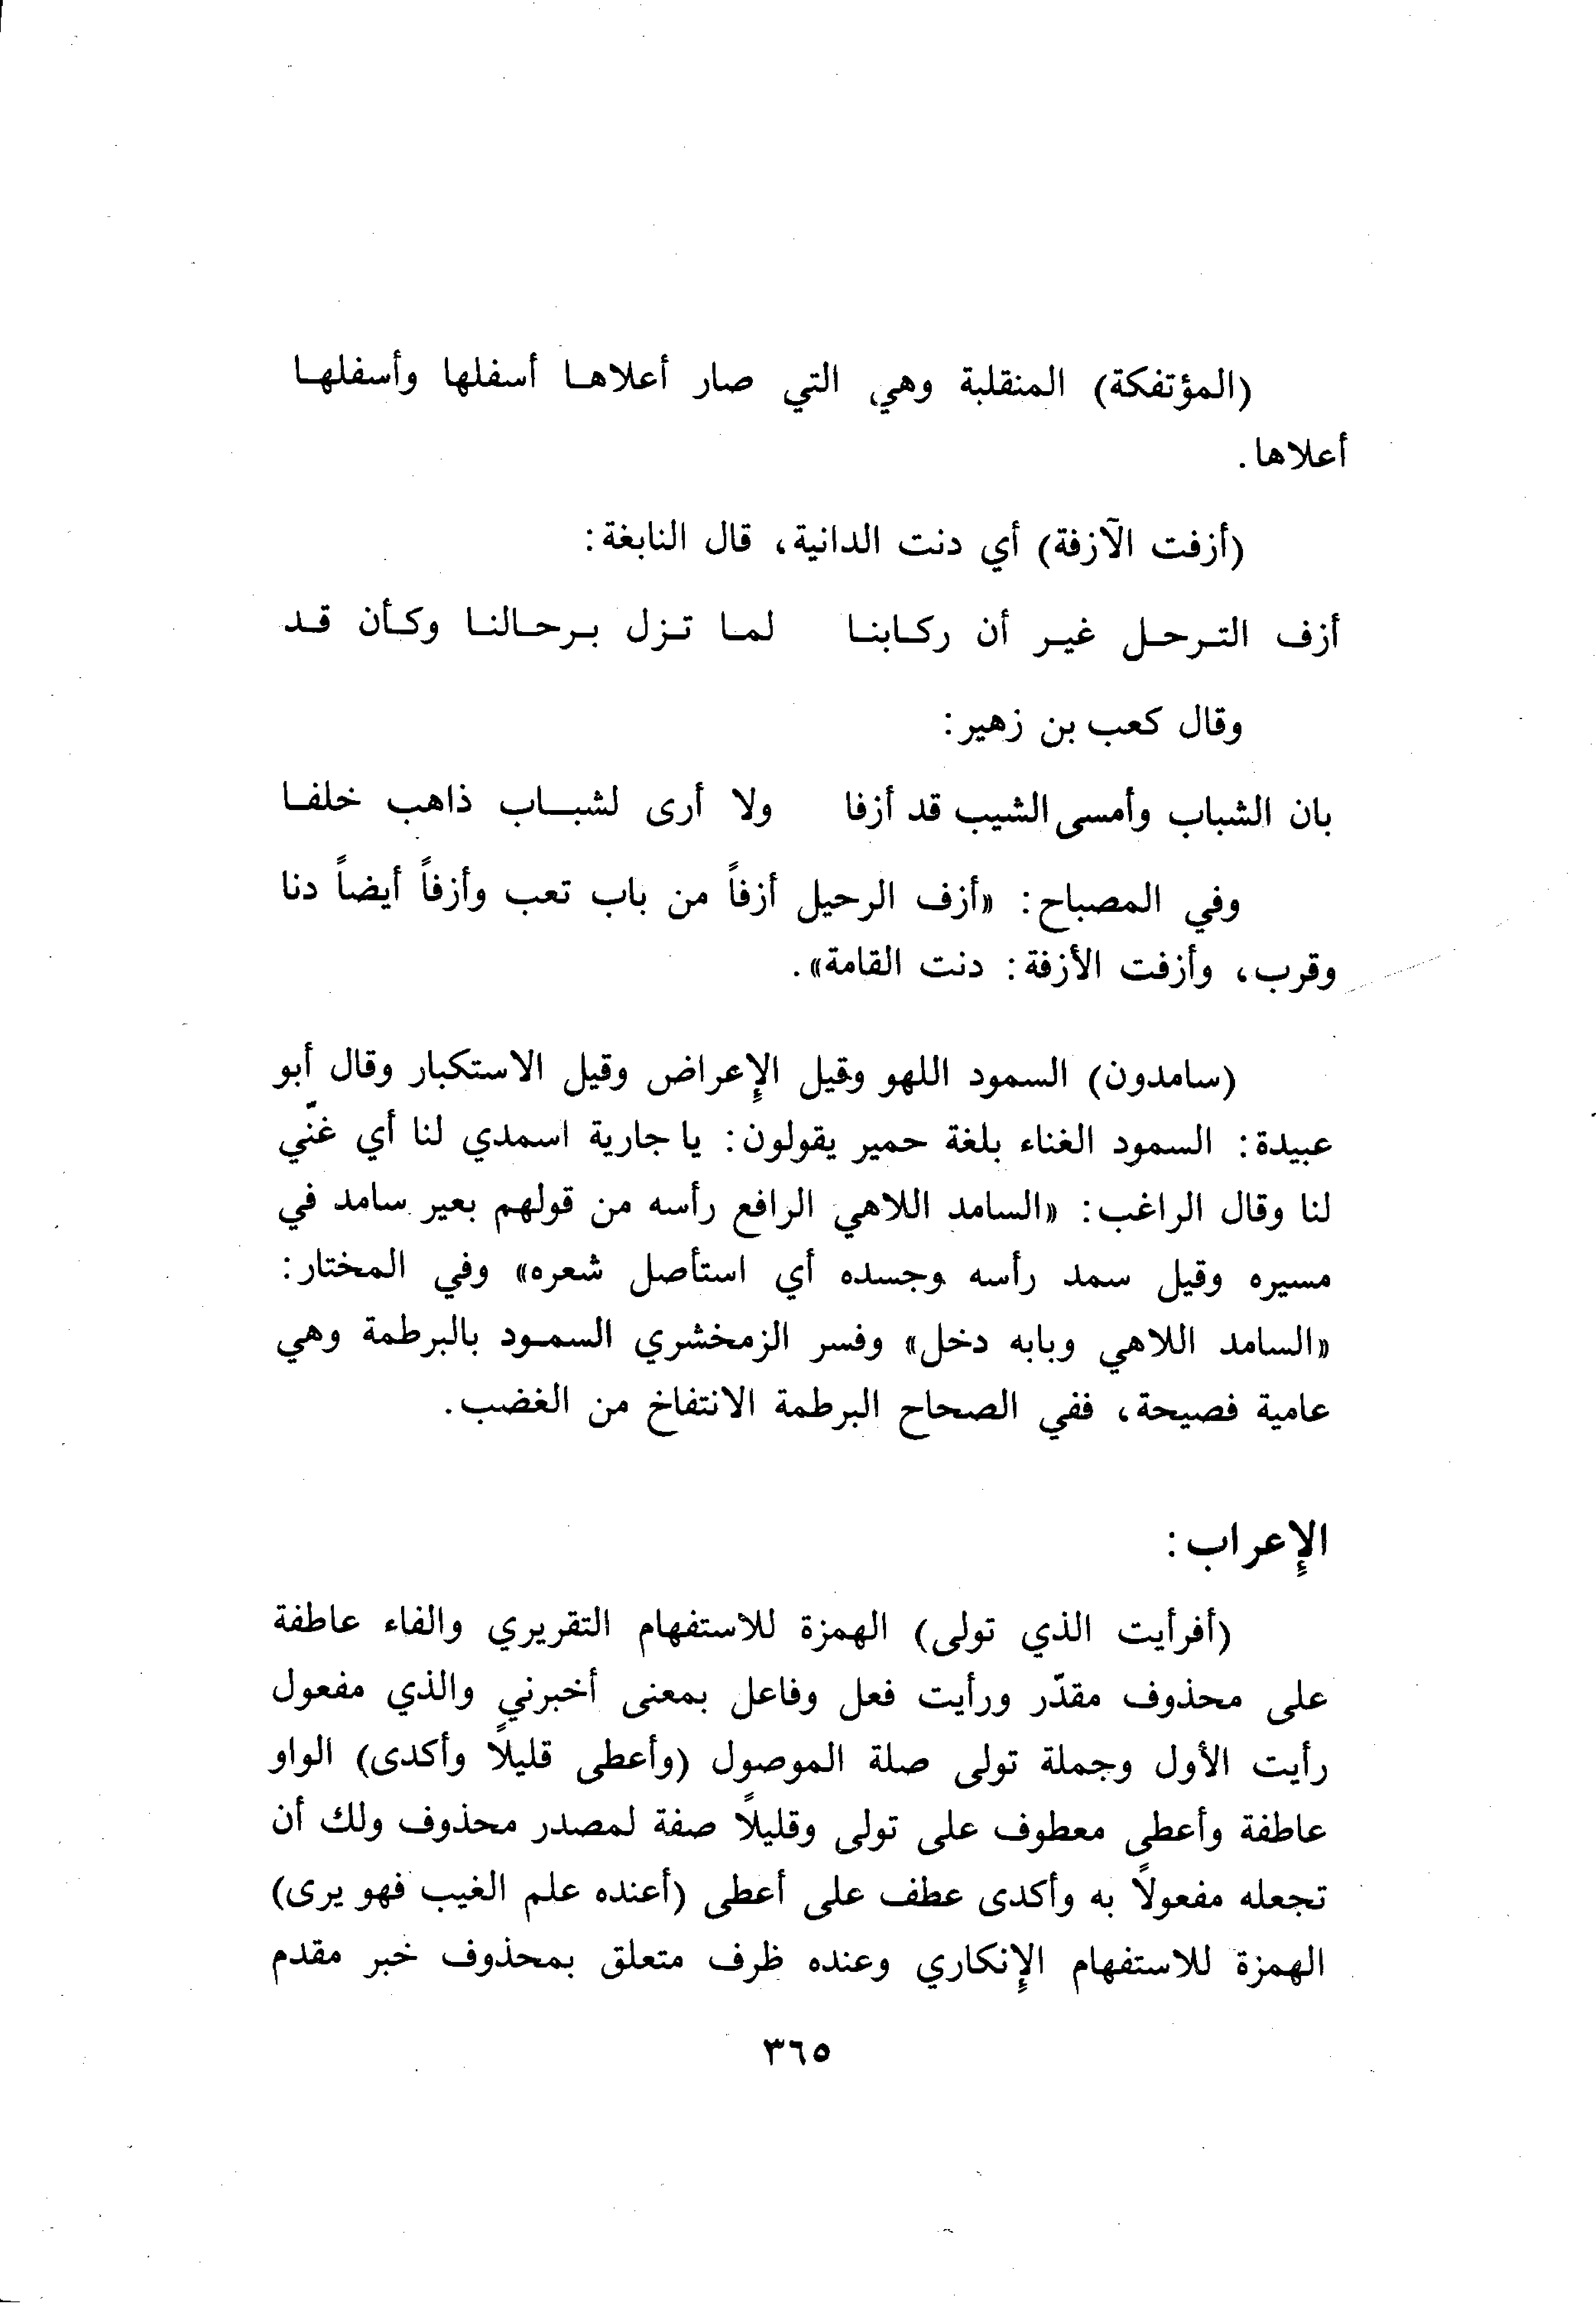 (المؤتفكة) المنقلبة وهي التي صار أعلاها أسفلها وأسفلها
أعلاها.
(أزفت الآزفة) أي دنت الدانية، قال النابغة:
أزف الترحل غير أن ركابنا لما تزل برحالنا وكأن قد
وقال كعب بن زهير:
بان الشباب وأمسى الشيب قد أزفا ولا أرى لشباب ذاهب خلفا
وفي المصباح: «أزف الرحيل أزفاً من باب تعب وأزفاً أيضاً دنا
وقرب، وأزفت الأزفة: دنت القامة».
(سامدون) السمود اللهو وقيل الإعراض وقيل الاستكبار وقال أبو
عبيدة: السمود الغناء بلغة حمير يقولون: يا جارية اسمدي لنا أي غنّي
لنا وقال الراغب: «السامد اللاهي الرافع رأسه من قولهم بعير سامد في
مسيره وقيل سمد رأسه وجسده أي استأصل شعره» وفي المختار:
«السامد اللاهي وبابه دخل» وفسر الزمخشري السمود بالبرطمة وهي
عامية فصيحة، ففي الصحاح البرطمة الانتفاخ من الغضب.
الإعراب:
(أفرأيت الذي تولى) الهمزة للاستفهام التقريري والفاء عاطفة
على محذوف مقدّر ورأيت فعل وفاعل بمعنى أخبرني والذي مفعول
رأيت الأول وجملة تولى صلة الموصول (وأعطى قليلاً وأكدى) الواو
عاطفة وأعطى معطوف على تولى وقليلاً صفة لمصدر محذوف ولك أن
تجعله مفعولاً به وأكدى عطف على أعطى (أعنده علم الغيب فهو يرى)
الهمزة للاستفهام الإنكاري وعنده ظرف متعلق بمحذوف خبر مقدم
٣٦٥